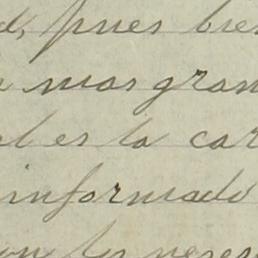 d, pues bien
mas gran
el es la car
informado